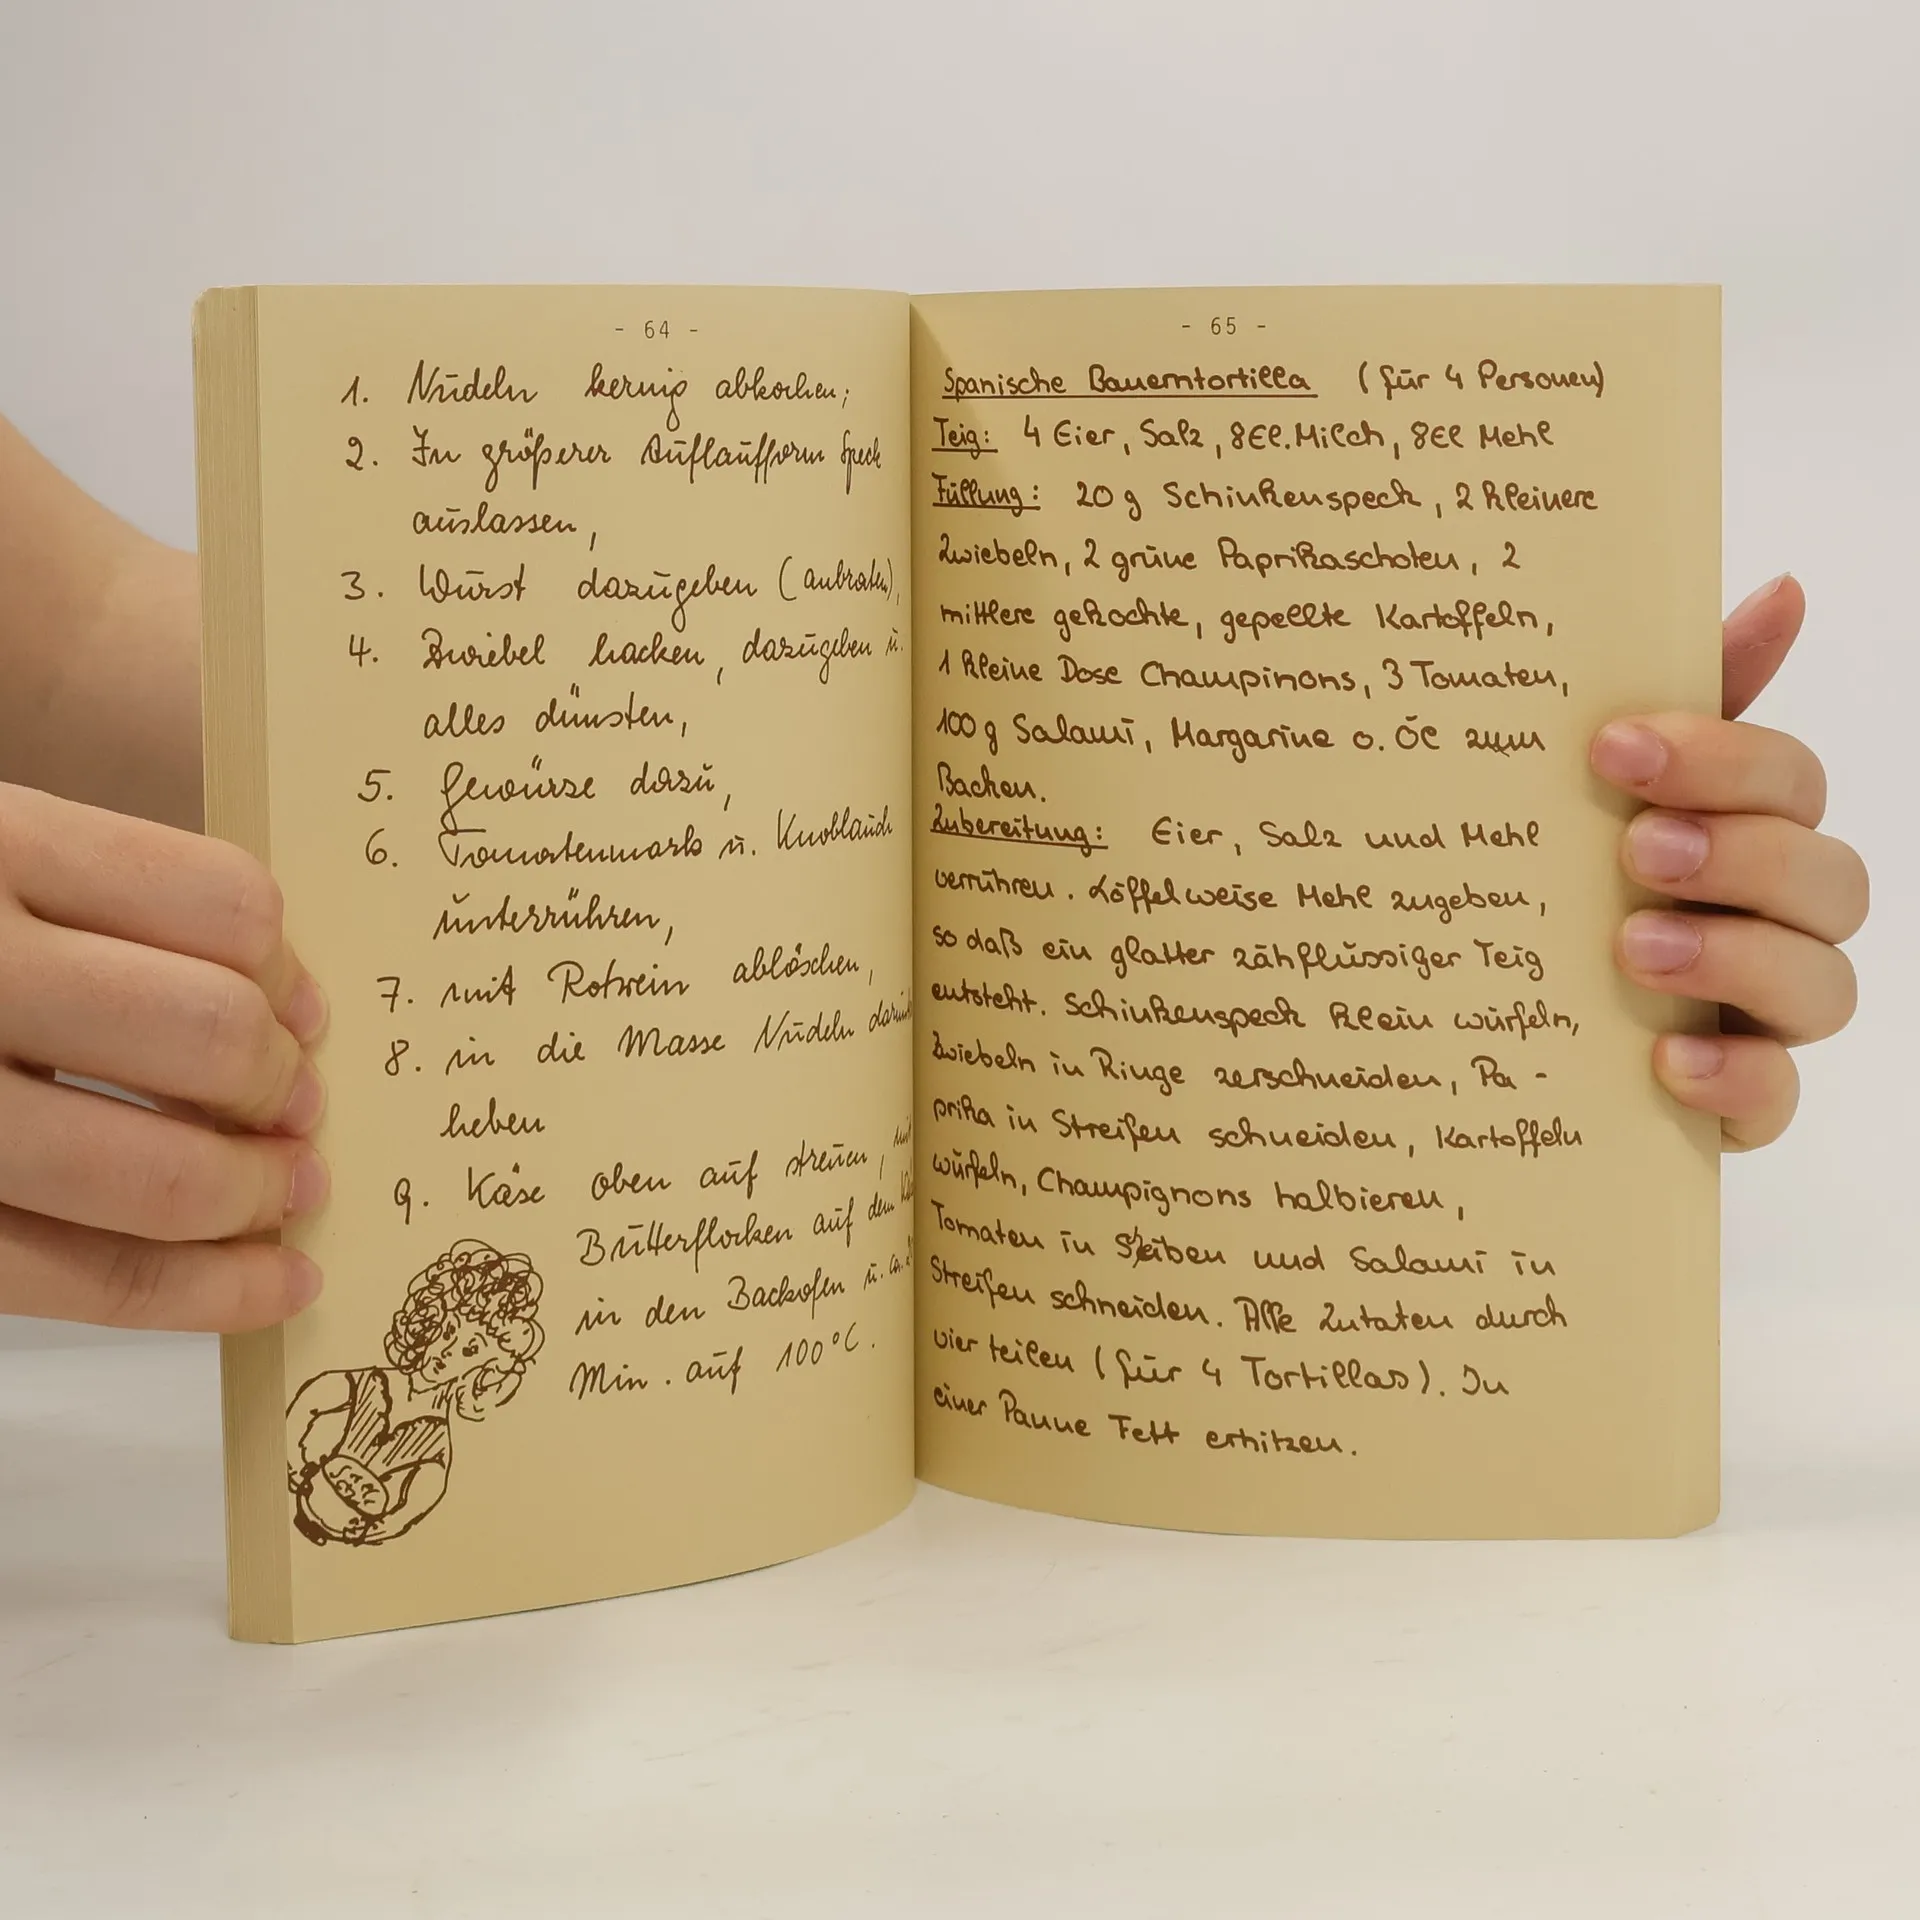 - 64 -
1. Nudeln kernig abkochen;
2. In größerer Auflaufform Speck
auslassen,
3. Wurst dazugeben (anbraten),
4. Zwiebel hacken, dazugeben u.
alles dünsten,
5. Gewürze dazu,
6. Tomatenmark u. Knoblauch
unterrühren,
7. mit Rotwein ablöschen,
8. in die Masse Nudeln
heben
9. Käse oben auf streuen, mit
Butterflocken auf dem
in den Backofen u. ca.
Min. auf 100°C.
- 65 -
Spanische Bauerntortilla (für 4 Personen)
Teig: 4 Eier, Salz, 8El. Milch, 8El Mehl
Füllung: 20 g Schinkenspeck, 2 kleinere
Zwiebeln, 2 grüne Paprikaschoten, 2
mittlere gekochte, gepellte Kartoffeln,
1 kleine Dose Champinons, 3 Tomaten,
100 g Salami, Margarine o. Öl zum
Backen.
Zubereitung: Eier, Salz und Mehl
verrühren. Löffelweise Mehl zugeben,
so daß ein glatter zähflüssiger Teig
entsteht. Schinkenspeck klein würfeln,
Zwiebeln in Ringe zerschneiden, Pa -
prika in Streifen schneiden, Kartoffeln
würfeln, Champignons halbieren,
Tomaten in und Salami in
Streifen schneiden. Alle Zutaten durch
vier teilen (für 4 Tortillas). In
einer Panne Fett erhitzen.